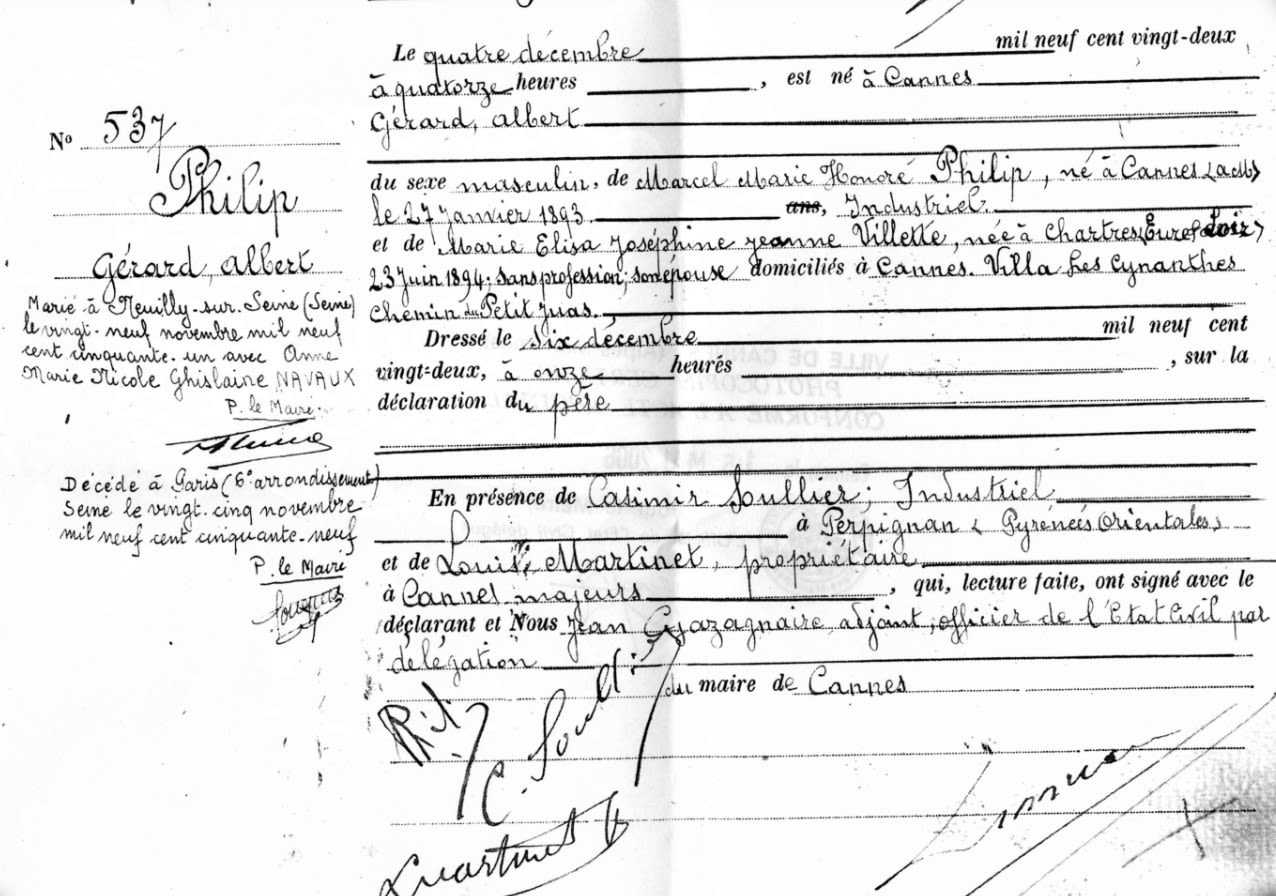 N° 537
Philip
Gérard, Albert
Marié à Neuilly-sur-Seine (Seine)
le vingt-neuf novembre mil neuf
cent cinquante-un avec Anne
Marie Nicole Ghislaine NAVAUX
P. le Maire
Décédé à Paris (6° arrondissement)
Seine le vingt-cinq novembre
mil neuf cent cinquante-neuf
P. le Maire
Le quatre décembre mil neuf cent vingt-deux
à quatorze heures , est né à Cannes
Gérard, Albert
du sexe masculin, de Marcel Marie Honoré Philip, né à Cannes (AM)
le 27 Janvier 1893 ans, Industriel.
et de Marie Elisa Joséphine Jeanne Villette, née à Chartres (Eure et Loir)
23 Juin 1894; sans profession; son épouse domiciliés à Cannes. Villa Les Cynanthes
Chemin du Petit Juas.
Dressé le six décembre mil neuf cent
vingt-deux, à onze heures , sur la
déclaration du père
VILLE DE CANNES
PHOTOCOPIE CERT
CONFORME A L'
En présence de Casimir Soullier; Industriel
à Perpignan (Pyrénées Orientales)
et de Louis, Martinet, propriétaire
à Cannes majeurs , qui, lecture faite, ont signé avec le
déclarant et Nous Jean Gazagnaire, adjoint, officier de l'Etat Civil par
délégation
du maire de Cannes
C. Soull
Martinet